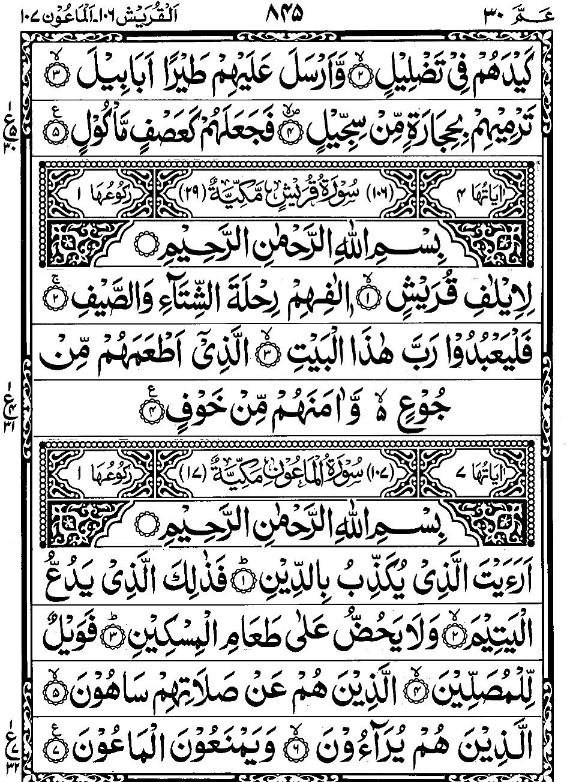 عـمّ ٣٠ ٨٤٥ القريش ١٠٦-الماعون ١٠٧
كَيْدَهُمْ فِيْ تَضْلِيْلٍ ۙ﴿۲﴾ وَّاَرْسَلَ عَلَيْهِمْ طَيْرًا اَبَابِيْلَ ۙ﴿۳﴾
تَرْمِيْهِمْ بِحِجَارَةٍ مِّنْ سِجِّيْلٍ ۪ۙ﴿۴﴾ فَجَعَلَهُمْ كَعَصْفٍ مَّاْكُوْلٍ ﴿۵﴾ ع
اٰيَاتُهَا ٤ (١٠٦) سُوْرَةُ قُرَيْشٍ مَكِّيَّةٌ (٢٩) رُكُوْعُهَا ١
بِسْمِ اللّٰهِ الرَّحْمٰنِ الرَّحِيْمِ
لِاِيْلٰفِ قُرَيْشٍ ۙ﴿۱﴾ اٖلٰفِهِمْ رِحْلَةَ الشِّتَآءِ وَالصَّيْفِ ۚ﴿۲﴾
فَلْيَعْبُدُوْا رَبَّ هٰذَا الْبَيْتِ ۙ﴿۳﴾ الَّذِيْۤ اَطْعَمَهُمْ مِّنْ
جُوْعٍ ۙ۬ وَّاٰمَنَهُمْ مِّنْ خَوْفٍ ﴿۴﴾ ع
اٰيَاتُهَا ٧ (١٠٧) سُوْرَةُ الْمَاعُوْنِ مَكِّيَّةٌ (١٧) رُكُوْعُهَا ١
بِسْمِ اللّٰهِ الرَّحْمٰنِ الرَّحِيْمِ
اَرَءَيْتَ الَّذِيْ يُكَذِّبُ بِالدِّيْنِ ؕ﴿۱﴾ فَذٰلِكَ الَّذِيْ يَدُعُّ
الْيَتِيْمَ ۙ﴿۲﴾ وَلَا يَحُضُّ عَلٰى طَعَامِ الْمِسْكِيْنِ ؕ﴿۳﴾ فَوَيْلٌ
لِّلْمُصَلِّيْنَ ۙ﴿۴﴾ الَّذِيْنَ هُمْ عَنْ صَلَاتِهِمْ سَاهُوْنَ ۙ﴿۵﴾
الَّذِيْنَ هُمْ يُرَآءُوْنَ ۙ﴿۶﴾ وَيَمْنَعُوْنَ الْمَاعُوْنَ ﴿۷﴾ ع